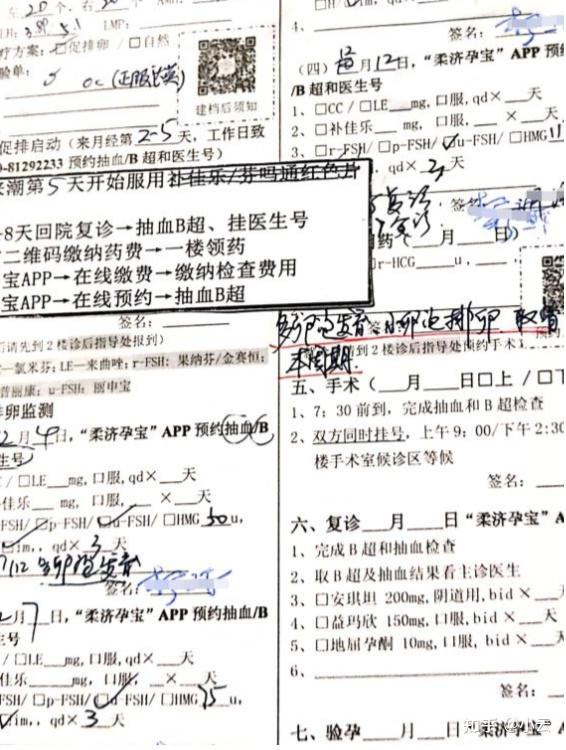 左20个,右20个
LMP:
疗方案:□促排卵/□自然
验单:
OC(正服达英)
建档后须知
促排启动(来月经第2-5天,工作日致
0-81292233 预约抽血/B 超和医生号)
来潮第5天开始服用补佳乐/芬吗通红色片
-8天回院复诊→抽血B超、挂医生号
二维码缴纳药费→一楼领药
宝APP→在线缴费→缴纳检查费用
宝APP→在线预约→抽血B超
签名:
后请先到2楼诊后指导处报到)
—氯米芬;LE—来曲唑;r-FSH:果纳芬/金赛恒;
普丽康;u-FSH:丽申宝
排卵监测
2月4日,“柔济孕宝”APP 预约抽血/B
生号)
C/□LE___mg,口服,qd×___天
佳乐___ mg, 口服,___ × ___天
-FSH/□p-FSH/□u-FSH/□HMG 50u,
□im,, qd× 3 天
签名:
2月7日,“柔济孕宝”APP 预约抽血/B
生号
/□LE___mg,口服,qd×___天
佳乐___mg,口服,___×___天
FSH/□p-FSH/□u-FSH/□HMG 75u,
□im,, qd× 3 天
4.
签名:
(四) 12月12日,“柔济孕宝”APP 预约
/B超和医生号
1、□CC/□LE___mg,口服,qd×___天
2、□补佳乐___mg,口服,___×___天
3、□r-FSH/□p-FSH/□u-FSH/□HMG
qd× 2 天
复诊
签名
药___月___日)
□r-HCG ___u,
多卵泡发育 小卵泡排卵 取消
本周期.
到2楼诊后指导处预约手术)
五、手术(___月___日□上/□下
1、7:30前到,完成抽血和B超检查
2、双方同时挂号,上午9:00/下午2:30
楼手术室候诊区等候
签名:
六、复诊___月___日“柔济孕宝”A
1、完成B超和抽血检查
2、取B超及抽血结果看主诊医生
3、□安琪坦 200mg,阴道用,bid×___
4、□益玛欣 150mg,口服,bid×___天
5、□地屈孕酮 10mg,口服,bid×___天
6、
签名:
七、验孕___月___日“柔济孕宝”A
知乎 @小云